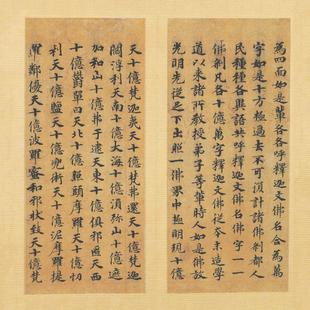 為四面如是輩各各呼釋迦文佛名合為萬
字如是十方極過去不可復計諸佛剎都人
民種種各異語共呼釋迦文佛名字一一
佛剎凡各十億萬字釋迦文佛從本末造學
道以來諸所教授弟子等輩時人如是佛故
光明先從足下出照一佛界中極明現十億
天十億梵迦夷天十億梵弗還天十億梵
利天南十億大海十億須弥山十億遮
加和山十億弗于逮天東十億俱耶匝天西
十億欝單曰天北十億照頭摩羅天十億忉
利天十億鹽天十億兜術天十億泥摩羅提
羅鄰優天十億波羅蜜和邪狀致天十億梵